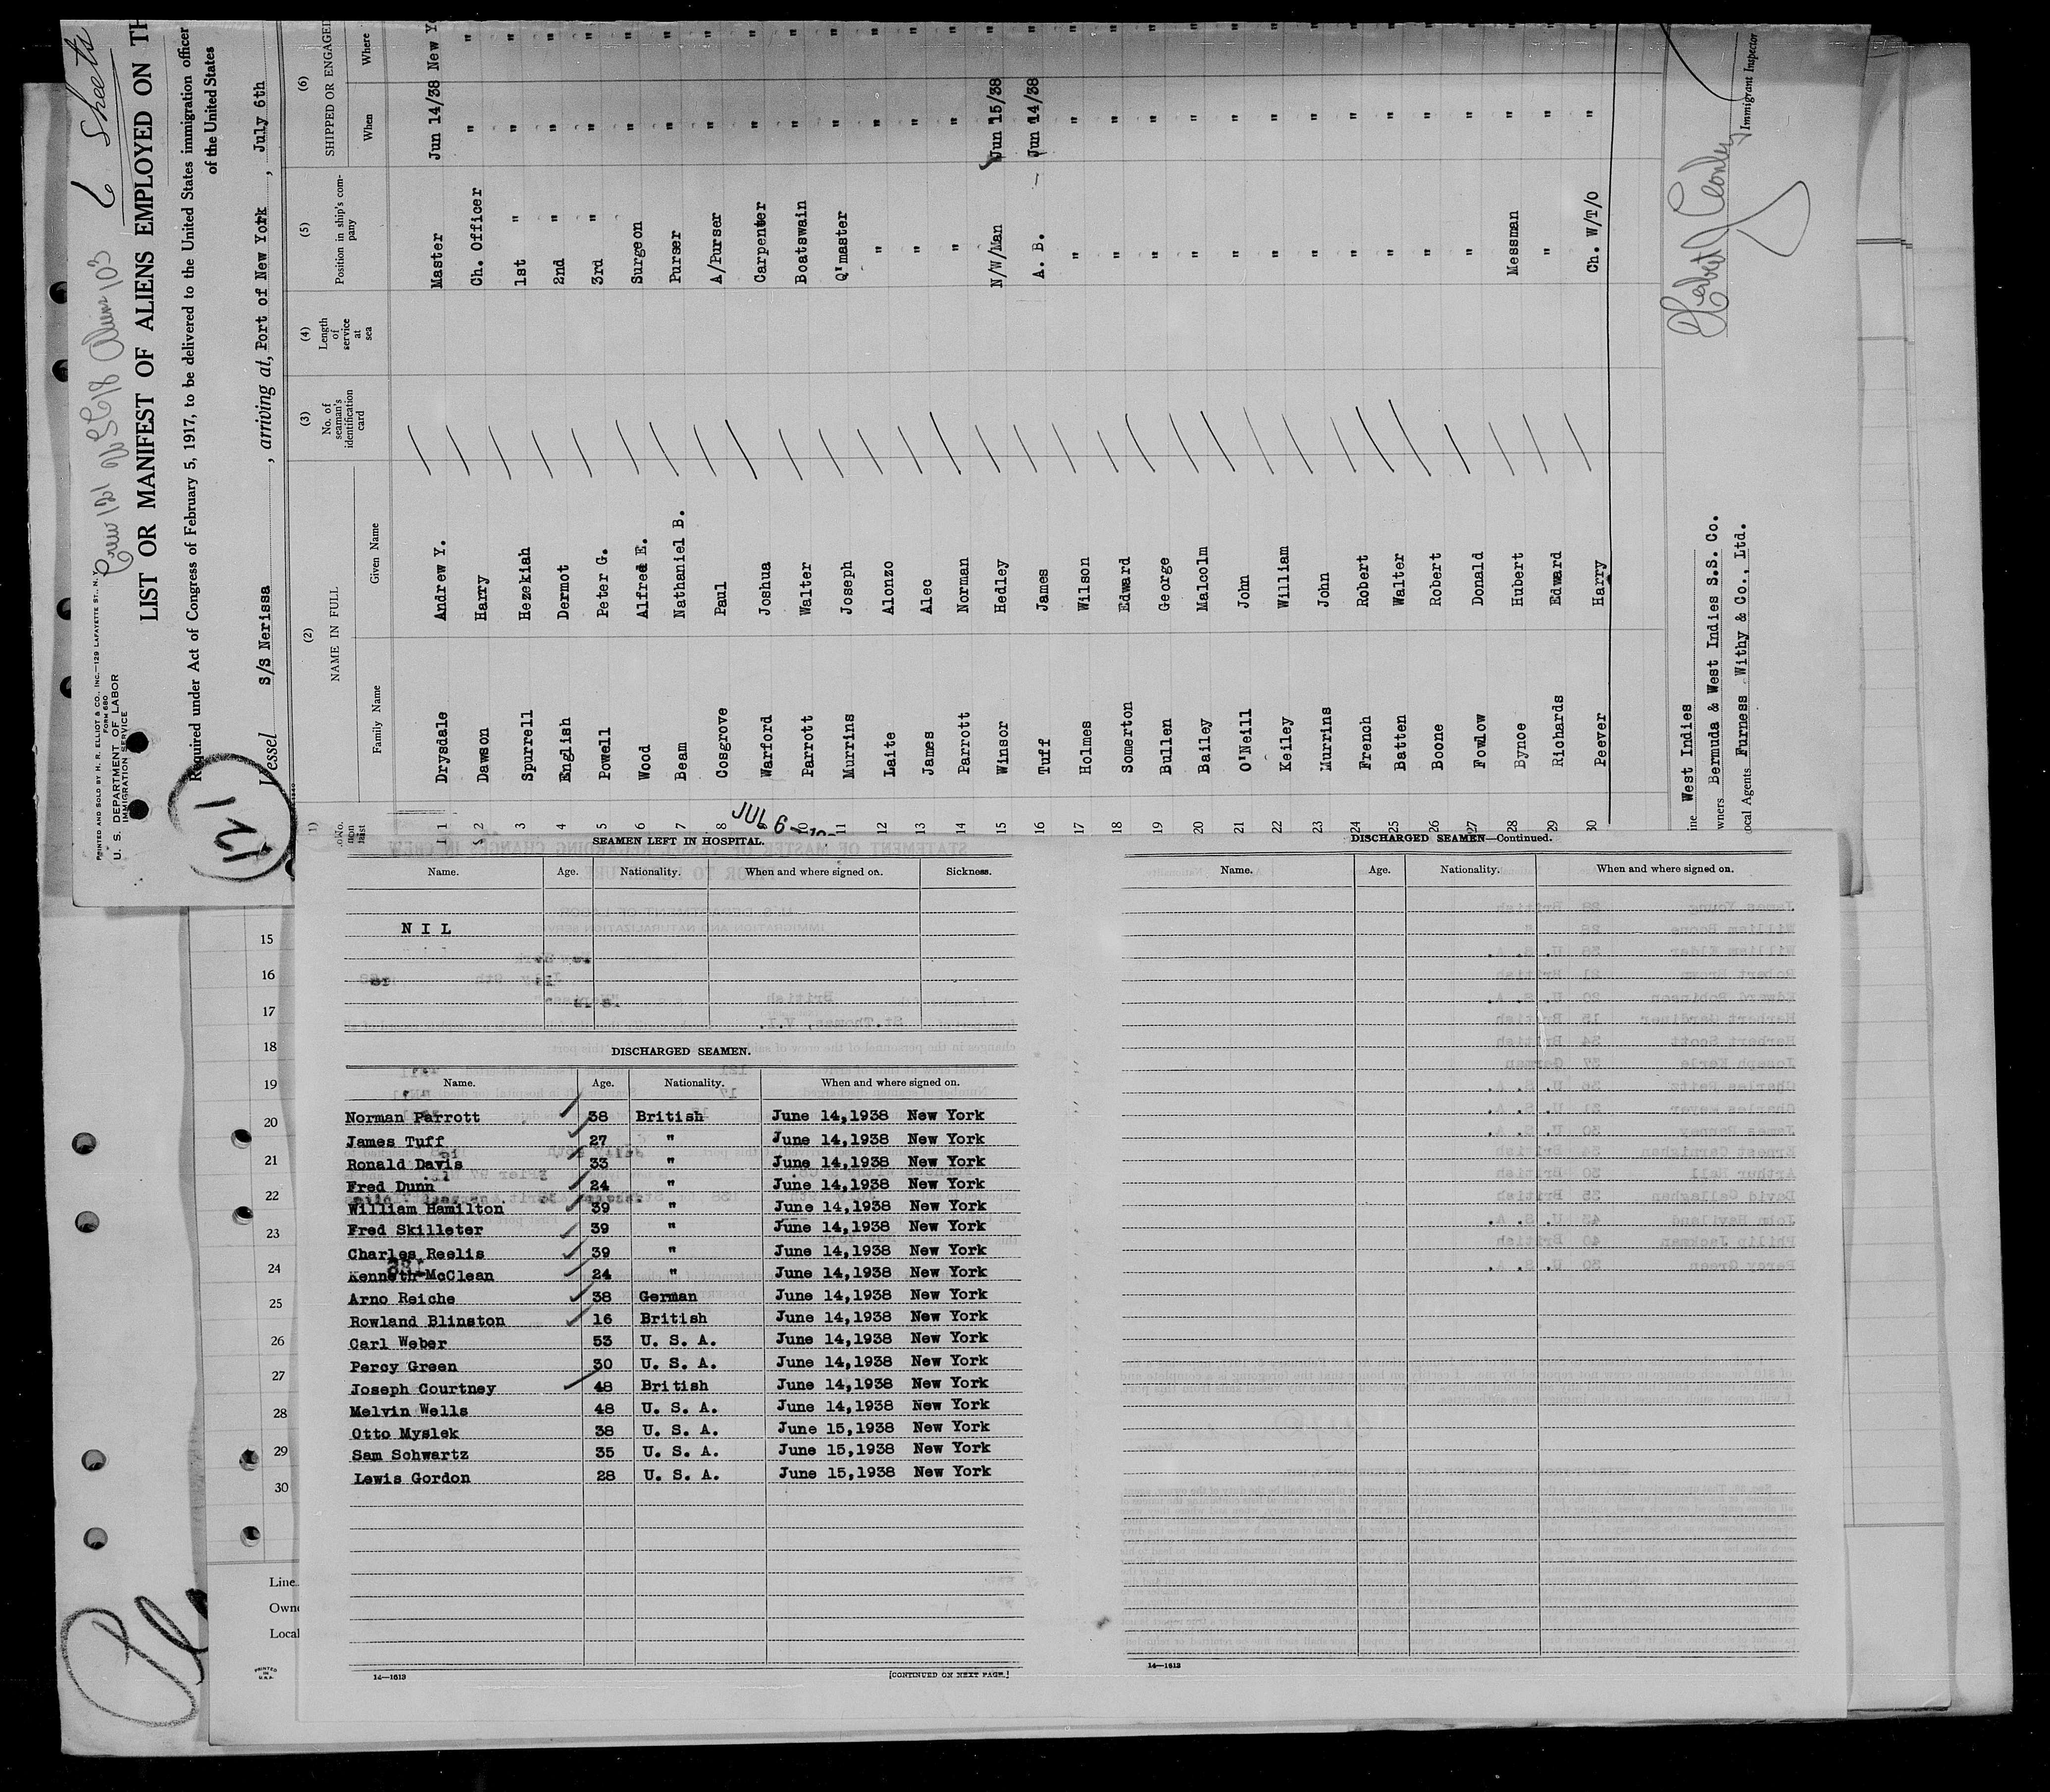 6 Sheets
Crew 121 USC 18 Aliens 103
PRINTED AND SOLD BY H. R. ELLIOT & CO., INC.—129 LAFAYETTE ST., N. Y.
FORM 680
U. S. DEPARTMENT OF LABOR
IMMIGRATION SERVICE
LIST OR MANIFEST OF ALIENS EMPLOYED ON TH
Required under Act of Congress of February 5, 1917, to be delivered to the United States immigration officer
of the United States
121
Vessel S/S Nerissa , arriving at, Port of New York , July 6th
(2) (3) (4) (5) (6)
NAME IN FULL No. of seaman's identification card Length of service at sea Position in ship's company SHIPPED OR ENGAGED
Family Name Given Name When Where
1 Drysdale Andrew Y. Master Jun 14/38 New Y
2 Dawson Harry Ch. Officer " "
3 Spurrell Hezekiah 1st " " "
4 English Dermot 2nd " " "
5 Powell Peter G. 3rd " " "
6 Wood Alfred E. Surgeon " "
7 Beam Nathaniel B. Purser " "
8 Cosgrove Paul A/Purser " "
Warford Joshua Carpenter " "
10 Parrott Walter Boatswain " "
11 Murrins Joseph Q'master " "
12 Laite Alonzo " " "
13 James Alec " " "
14 Parrott Norman " " "
15 Winsor Hedley N/W/Man Jun 15/38 "
16 Tuff James A. B. Jun 14/38 "
17 Holmes Wilson " " "
18 Somerton Edward " " "
19 Bullen George " " "
20 Bailey Malcolm " " "
21 O'Neill John " " "
22 Keiley William " " "
23 Murrins John " " "
24 French Robert " " "
25 Batten Walter " " "
26 Boone Robert " " "
27 Fowlow Donald " " "
28 Bynoe Hubert Messman " "
29 Richards Edward " " "
30 Peever Harry Ch. W/T/O " "
JUL 6
ine West Indies
wners Bermuda & West Indies S.S. Co.
ocal Agents Furness Withy & Co., Ltd.
Immigrant Inspector
SEAMEN LEFT IN HOSPITAL.
Name. Age. Nationality. When and where signed on. Sickness.
N I L
DISCHARGED SEAMEN.
Name. Age. Nationality. When and where signed on.
Norman Parrott 38 British June 14,1938 New York
James Tuff 27 " June 14,1938 New York
Ronald Davis 33 " June 14,1938 New York
Fred Dunn 24 " June 14,1938 New York
William Hamilton 39 " June 14,1938 New York
Fred Skilleter 39 " June 14,1938 New York
Charles Reelis 39 " June 14,1938 New York
Kenneth McClean 24 " June 14,1938 New York
Arno Reiche 38 German June 14,1938 New York
Rowland Blinston 16 British June 14,1938 New York
Carl Weber 53 U. S. A. June 14,1938 New York
Percy Green 30 U. S. A. June 14,1938 New York
Joseph Courtney 48 British June 14,1938 New York
Melvin Wells 48 U. S. A. June 14,1938 New York
Otto Myslek 38 U. S. A. June 15,1938 New York
Sam Schwartz 35 U. S. A. June 15,1938 New York
Lewis Gordon 28 U. S. A. June 15,1938 New York
14—1613 [CONTINUED ON NEXT PAGE.]
DISCHARGED SEAMEN—Continued.
Name. Age. Nationality. When and where signed on.
14—1613
15
16
17
18
19
20
21
22
23
24
25
26
27
28
29
30
Line
Owne
Local
PRINTED
IN
U.S.A.